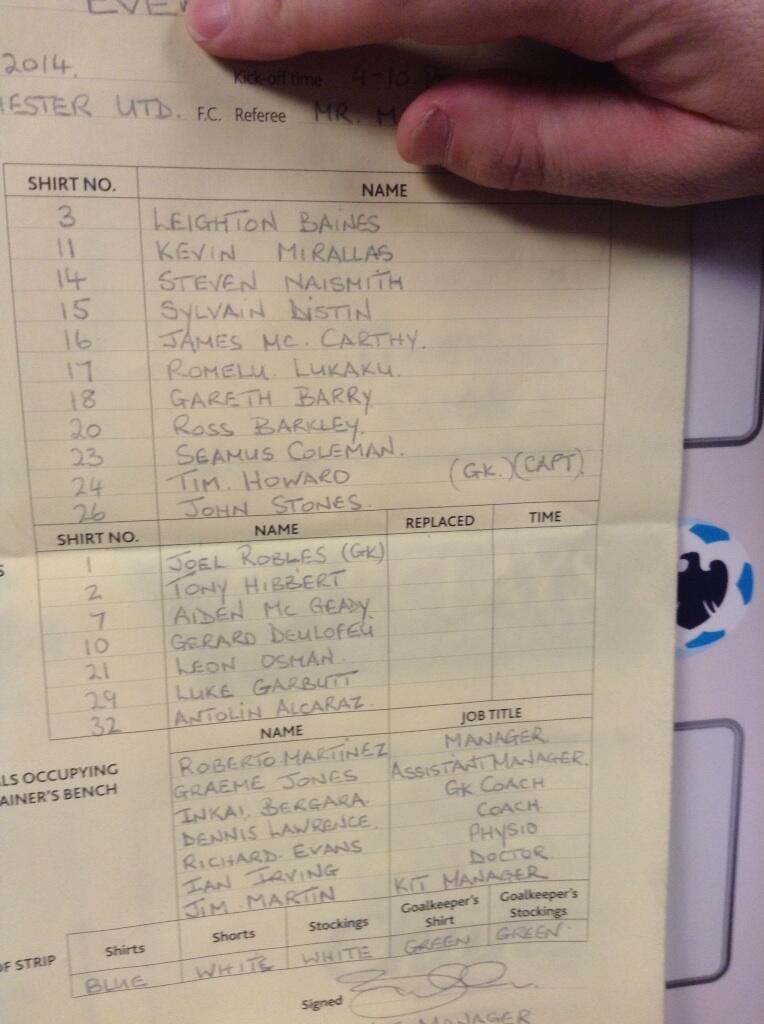 2014. Kick-off time 4-10
ESTER UTD. F.C. Referee MR. M
SHIRT NO. NAME
3 LEIGHTON BAINES
11 KEVIN MIRALLAS
14 STEVEN NAISMITH
15 SYLVAIN DISTIN
16 JAMES MC. CARTHY.
17 ROMELU LUKAKU.
18 GARETH BARRY
20 ROSS BARKLEY.
23 SEAMUS COLEMAN.
24 TIM. HOWARD (GK.) (CAPT)
26 JOHN STONES.
SHIRT NO. NAME REPLACED TIME
1 JOEL ROBLES (GK)
2 TONY HIBBERT
7 AIDEN MC GEADY
10 GERARD DEULOFEU
21 LEON OSMAN.
29 LUKE GARBUTT
32 ANTOLIN ALCARAZ.
NAME JOB TITLE
ROBERTO MARTINEZ MANAGER
GRAEME JONES ASSISTANT MANAGER.
INKAI BERGARA. GK COACH
DENNIS LAWRENCE. COACH
RICHARD EVANS PHYSIO
IAN IRVING DOCTOR
JIM MARTIN KIT MANAGER
LS OCCUPYING
AINER'S BENCH
OF STRIP Shirts Shorts Stockings Goalkeeper's Shirt Goalkeeper's Stockings
BLUE WHITE WHITE GREEN GREEN
Signed
MANAGER